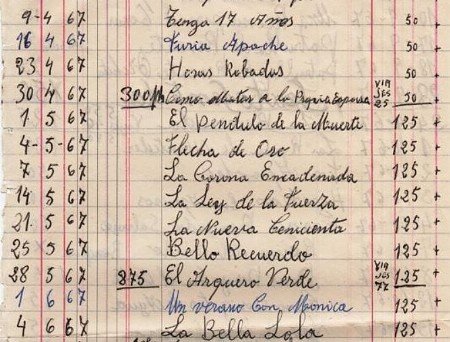 9-4 67 Tengo 17 Años 50 +
16 4 67 Furia Apache 50 +
23 4 67 Horas Robadas 50 +
30 4 67 300 Como Matar a la Propia Esposa 25 50 +
1 5 67 El Pendulo de la Muerte 125 +
4-5-67 Flecha de Oro 125 +
7 5 67 La Corona Encadenada 125 +
14 5 67 La Ley de la Fuerza 125 +
21 5 67 La Nueva Cenicienta 125 +
25 5 67 Bello Recuerdo 125 +
28 5 67 875 El Arquero Verde 77 125 +
1 6 67 Un Verano Con Monica 125 +
4 6 67 La Bella Lola 125 +